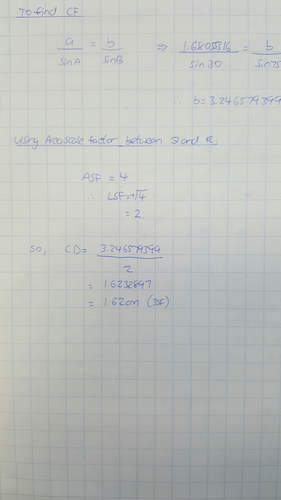 To find CF
a/sinA = b/sinB ⇒ 1.6805316/sin30 = b/sin75
∴ b = 3.246579399
Using Area scale factor between Q and R.
ASF = 4
∴ LSF = √4
= 2
So, CD = 3.246579399/2
= 1.6232897
= 1.62cm (3sf)